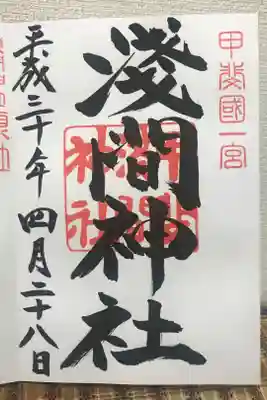 甲斐國一宮
淺間神社
淺間神社
平成三十年四月二十八日